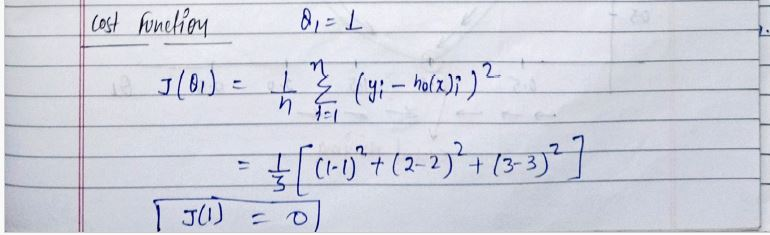 Cost Function θ₁ = 1
J(θ₁) = 1/n Σ_{i=1}^{n} (yᵢ − hθ(x)ᵢ)²
= 1/3 [(1-1)² + (2-2)² + (3-3)²]
J(1) = 0